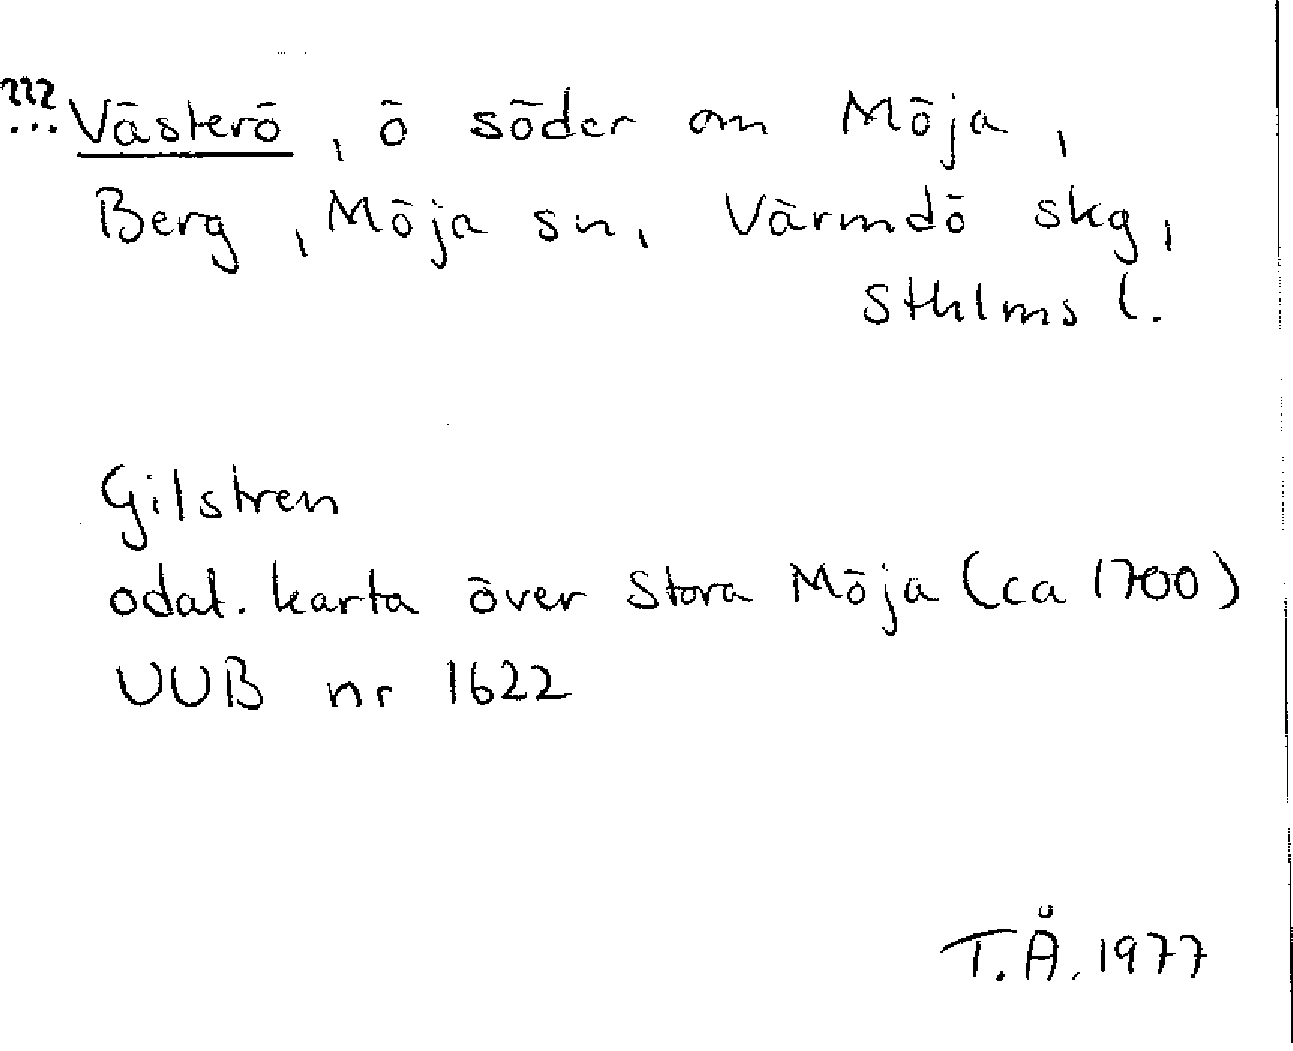 ??? Västerö, ö söder om Möja,
Berg, Möja sn, Värmdö skg,
Sthlms l.
Gilstren
odat. karta över Stora Möja (ca 1700)
UUB nr 1622
T.Å. 1977